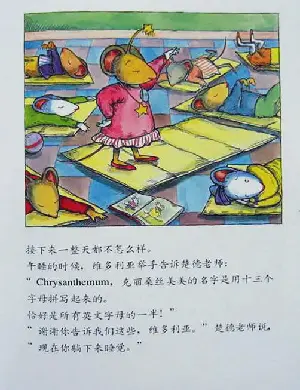 接下来一整天都不怎么样。
午睡的时候，维多利亚举手告诉楚德老师：
“Chrysanthemum，克丽桑丝美美的名字是用十三个
字母拼写起来的。
恰好是所有英文字母的一半！”
“谢谢你告诉我们这些，维多利亚。”楚德老师说，
“现在你躺下来睡觉。”